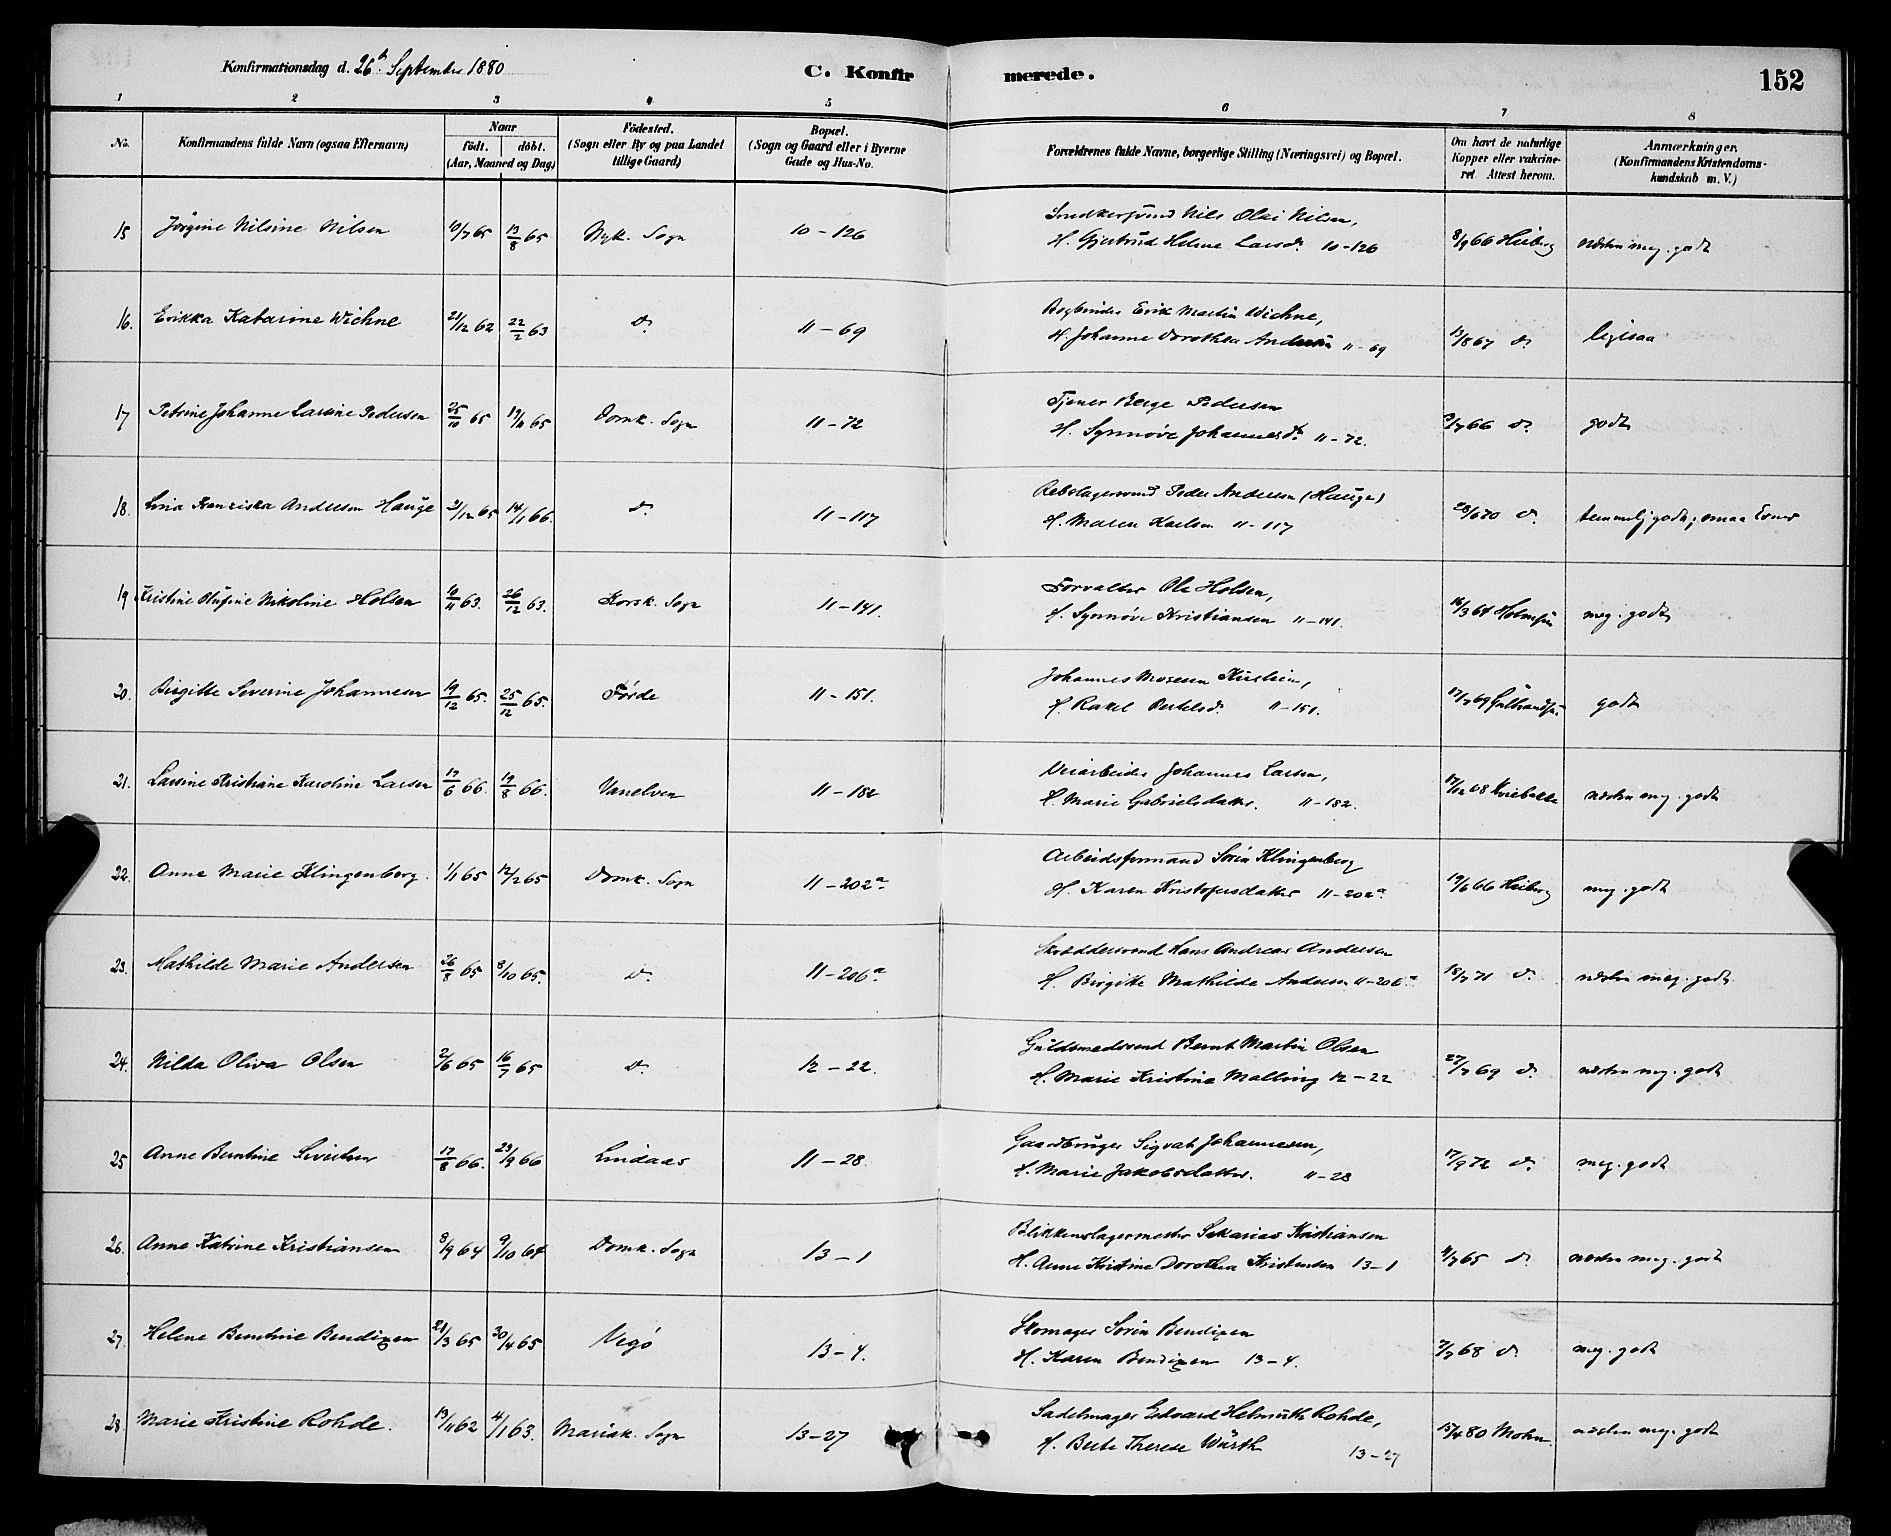 Konfirmationsdag d. 26de September 1880
C. Konfirmerede.
152
1 2 3 4 5 6 7 8
No.
Konfirmandens fulde Navn (ogsaa Efternavn)
Naar
födt. döbt.
(Aar, Maaned og Dag)
Födested.
(Sogn eller By og paa Landet
tillige Gaard)
Bopæl.
(Sogn og Gaard eller i Byerne
Gade og Hus-No.
Forældrenes fulde Navne, borgerlige Stilling (Næringsvei) og Bopæl.
Om havt de naturlige
Kopper eller vakcine-
ret. Attest herom.
Anmærkninger.
(Konfirmandens Kristendoms-
kundskab m. V.)
15 Jörgine Nilsine Nilsen 10/7 65 13/8 65 Nyk. Sogn 10-126 Snedkersvend Nils Olai Nilsen,
H. Gjertrud Helene Larsdr. 10-126 8/9 66 Heiberg næsten meg. godt
16. Erikka Katarine Wichne 21/12 62 22/2 63 do. 11-69 Bogbinder Erik Martin Wichne,
H. Johanne Dorothea Andersen 11-69 13/8 67 do. ligesaa
17 Petrine Johanne Larsine Pedersen 25/10 65 19/11 65 Domk. Sogn 11-72 Tjener Berge Pedersen
H. Synnöve Johannesdtr. 11-72. 9/7 66 do. godt
18. Lina Franziska Andersen Hauge 21/12 65 14/1 66. do. 11-117 Rebslagersvend Peder Andersen (Hauge)
H. Maren Karlsen 11-117 28/6 70 do. temmelig godt,
19 Kristine Olufine Nikoline Holsen 10/11 63. 26/12 63. Korsk. Sogn 11-141. Forvalter Ole Holsen,
H. Synnöve Kristiansen 11-141. 16/3 64 meg. godt
20. Birgitte Severine Johannesen 19/12 65. 25/12 65. Förde 11-151. Johannes Mosesen
H. Rakel Bertelsdr. 11-151. 17/7 69 godt
21. Larsine Kristiane Karoline Larsen 17/6 66. 19/8 66. Vanelven 11-182 Veiarbeider Johannes Larsen,
H. Marie Gabrielsdatter. 11-182. 17/12 68 næsten meg. godt
22. Anne Marie Klingenberg. 1/1 65 12/2 65 Domk. Sogn 11-202a. Arbeidsformand Sören Klingenberg
H. Karen Kristofersdatter 11-202a. 19/6 66 Heiberg meg. godt
23. Mathilde Marie Andersen 26/8 65 8/10 65. do. 11-206a Skræddersvend Hans Andreas Andersen
H. Birgitte Mathilde Andersen 11-206a 18/7 71 do. næsten meg. godt
24. Nilda Oliva Olsen 2/6 65 16/7 65 do. 12-22. Guldsmedsvend Bernt Martin Olsen
H. Marie Kristine Malling 12-22 27/7 69 do. næsten meg. godt
25 Anne Berntine Sivertsen 17/8 66. 23/9 66 Lindaas 11-28. Gaardbruger Sigvat Johannesen,
H. Marie Jakobsdatter. 11-28 17/9 72 do. meg. godt
26. Anne Katrine Kristiansen 8/9 64 9/10 64 Domk. Sogn 13-1 Blikkenslagermester Sakarias Kristiansen
H. Anne Kristine Dorothea Kristensen 13-1 4/7 65 do. næsten meg. godt
27. Helene Berntine Bendixen 21/3 65 30/4 65 Vegö 13-4. Skomager Sören Bendixen
H. Karen Bendixen 13-4. 7/7 68 do. meg. godt
28 Marie Kristine Rohde. 13/11 62 4/1 63. Mariak. Sogn 13-27 Sadelmager Edvard Helmuth Rohde,
H. Berte Therese Würth 13-27 15/4 80 Mohn. næsten meg. godt